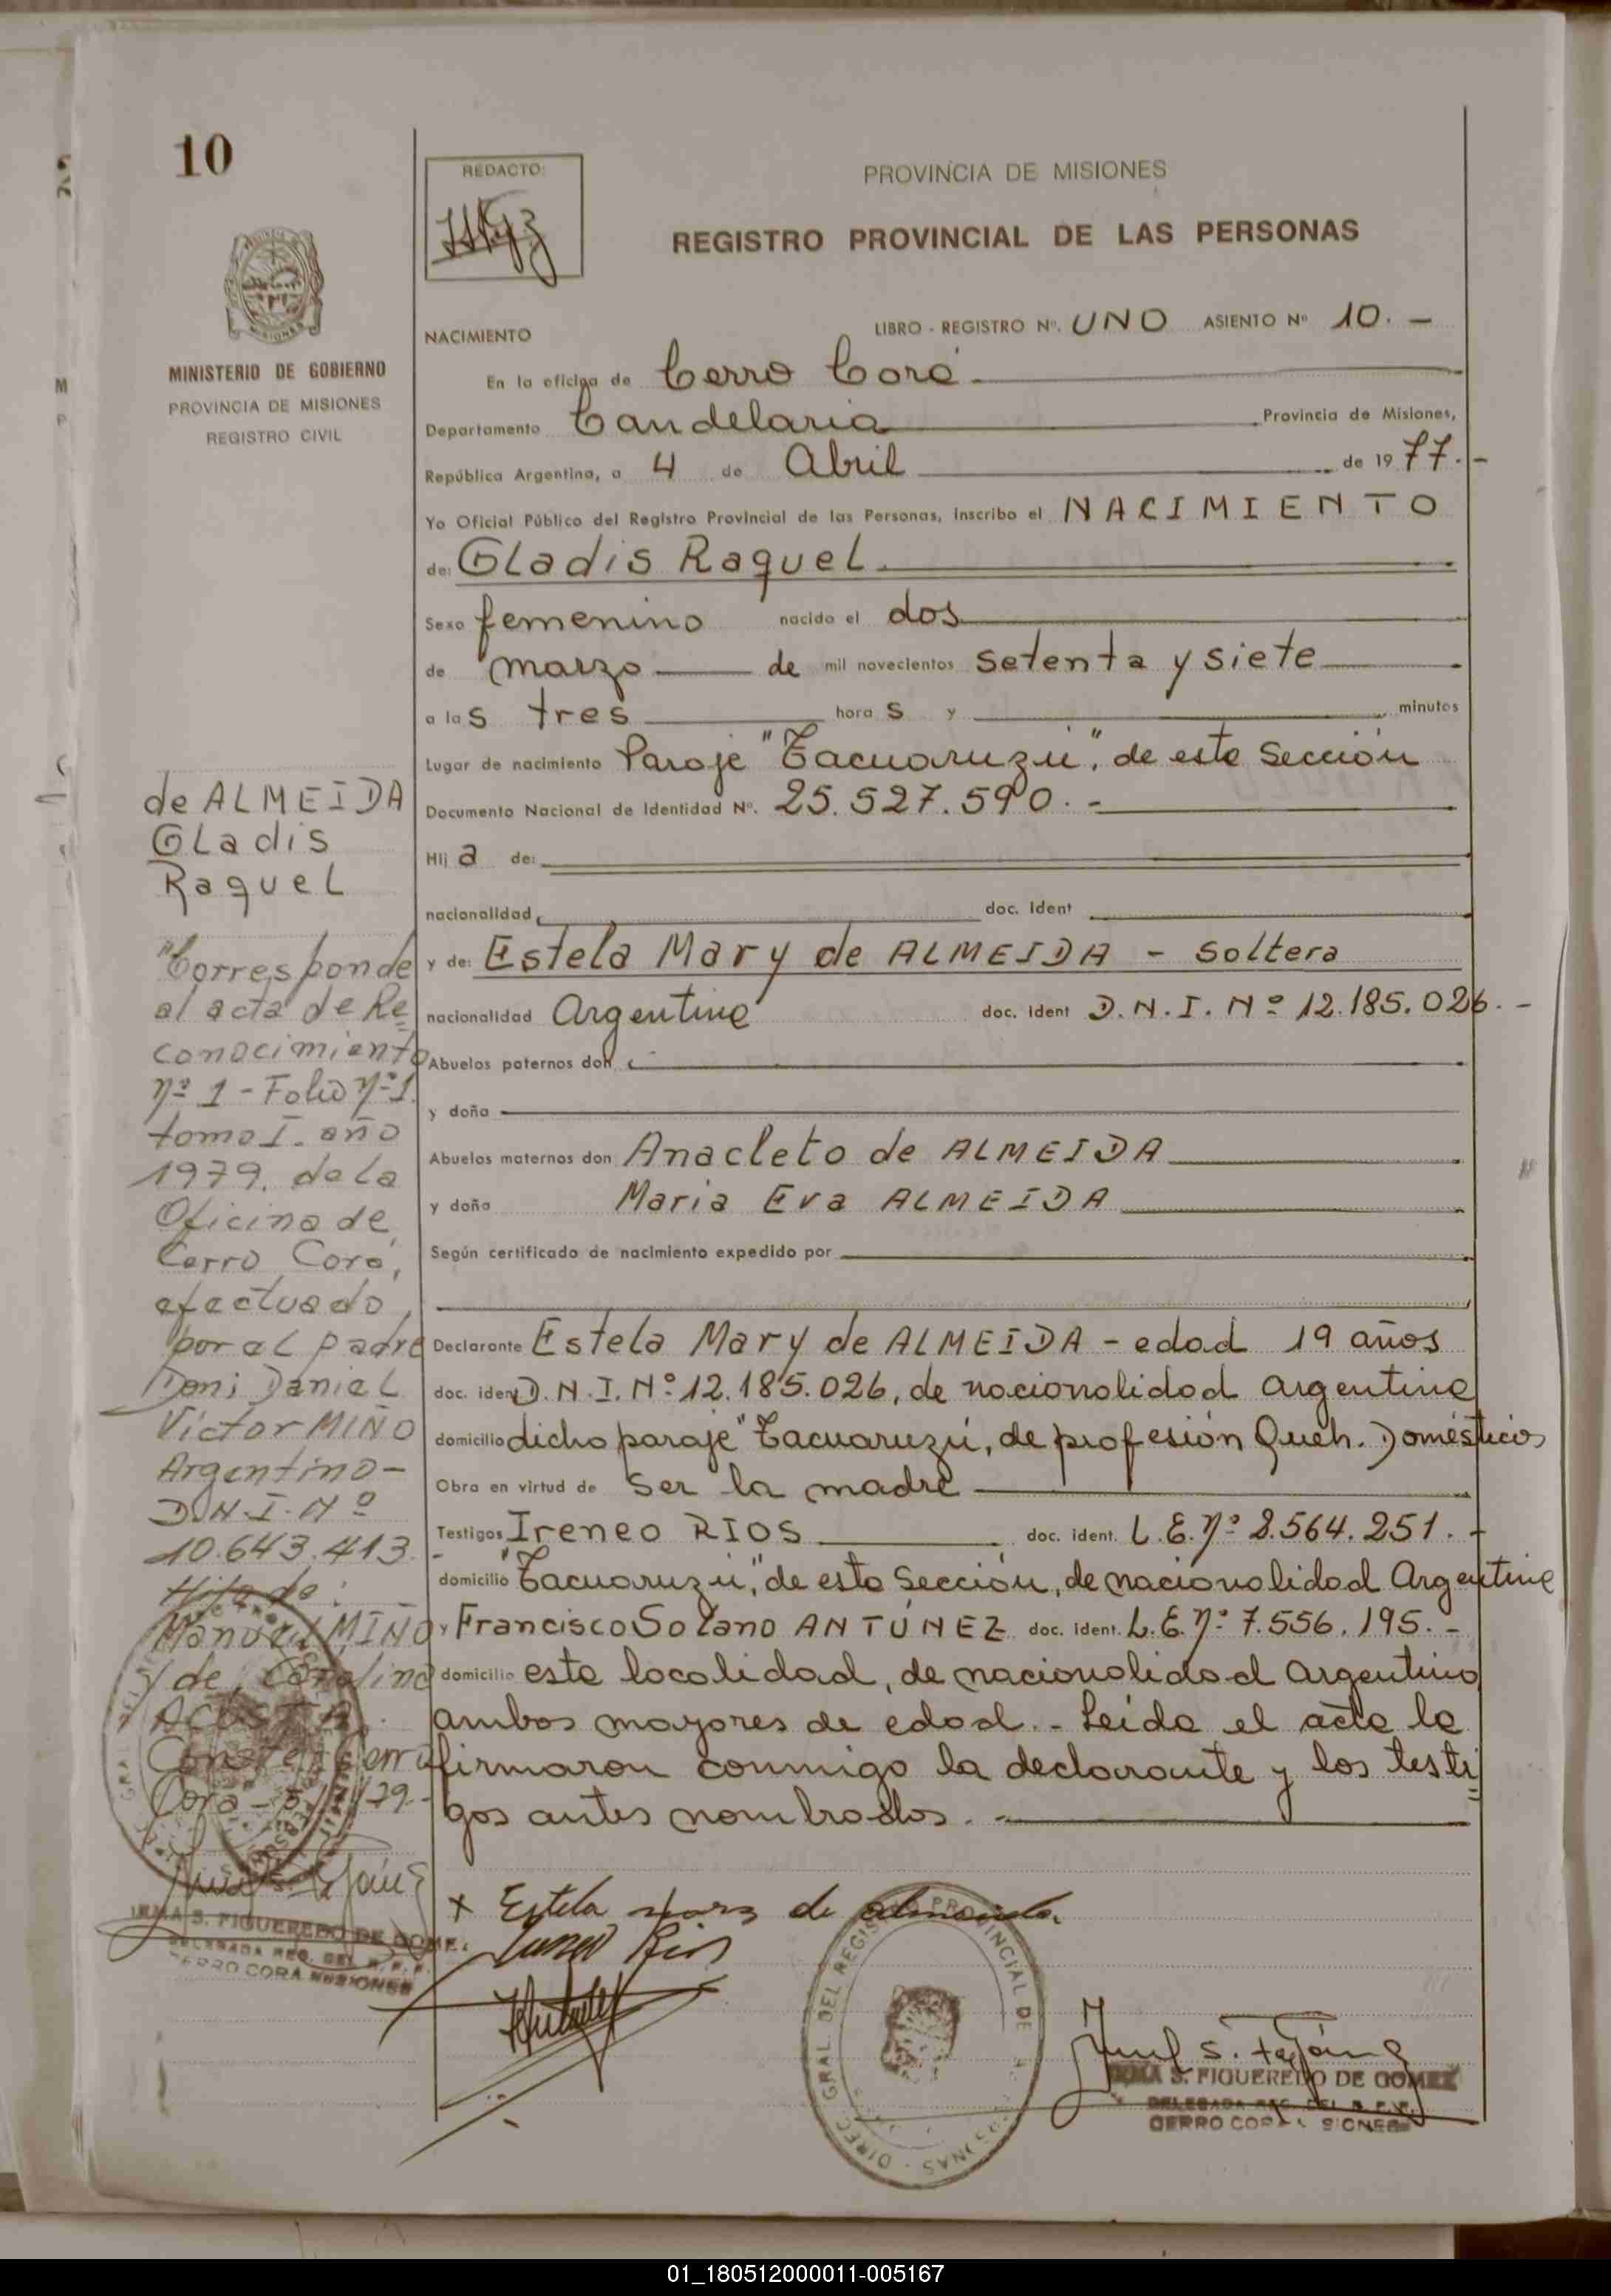 10
REDACTO:
PROVINCIA DE MISIONES
REGISTRO PROVINCIAL DE LAS PERSONAS
MINISTERIO DE GOBIERNO
PROVINCIA DE MISIONES
REGISTRO CIVIL
NACIMIENTO
LIBRO - REGISTRO Nº. UNO ASIENTO Nº 10. -
En la oficina de Cerro Corá
Departamento Candelaria Provincia de Misiones,
República Argentina, a 4 de Abril de 1977.-
Yo Oficial Público del Registro Provincial de las Personas, inscribo el NACIMIENTO
de: Gladis Raquel.
Sexo femenino nacido el dos
de marzo de mil novecientos setenta y siete
a las tres horas y minutos
Lugar de nacimiento Paraje "Tacuaruzú", de esta Sección
Documento Nacional de Identidad Nº. 25.527.590.-
Hija de:
nacionalidad doc. Ident
y de: Estela Mary de ALMEIDA - Soltera
nacionalidad Argentina doc. Ident D.N.I. Nº 12.185.026.-
Abuelos paternos don
y doña
Abuelos maternos don Anacleto de ALMEIDA
y doña Maria Eva ALMEIDA
Según certificado de nacimiento expedido por
Declarante Estela Mary de ALMEIDA - edad 19 años
doc. iden D.N.I. Nº 12.185.026, de nacionalidad argentina
domicilio dicho paraje "Tacuaruzú, de profesión Queh. Domésticos
Obra en virtud de ser la madre
Testigos Ireneo RIOS doc. ident. L.E. Nº 8.564.251.-
domicilio "Tacuaruzú", de esta Sección, de nacionalidad Argentina
y Francisco Solano ANTÚNEZ doc. ident. L.E. Nº 7.556.195.-
domicilio esta localidad, de nacionalidad argentina
ambos mayores de edad.- Leída el acta la
firmaron conmigo la declarante y los testi
gos antes nombrados.-
de ALMEIDA
Gladis
Raquel
"Corresponde
al acta de Re
conocimiento
Nº 1 - Folio Nº 1
tomo I. año
1979. de la
Oficina de
Cerro Corá,
efectuado,
por el padre
Don: Daniel
Víctor MIÑO
Argentino-
D.N.I. Nº
10.643.413.-
Hijo de:
Manuel MIÑO
y de, Catalina
ACOSTA.
Conste Cerro
Corá - /79.-
IRMA S. FIGUEREDO DE GOME
DELEGADA REG. DEL R.P.P.
CERRO CORA MISIONES
x Estela Mary de almeida
Rios
DIREC. GRAL. DEL REGIST. PROVINCIAL DE LAS PERSONAS
IRMA S. FIGUEREDO DE GOMEZ
DELEGADA REG. DEL R.P.P.
CERRO CORA MISIONES
01_180512000011-005167